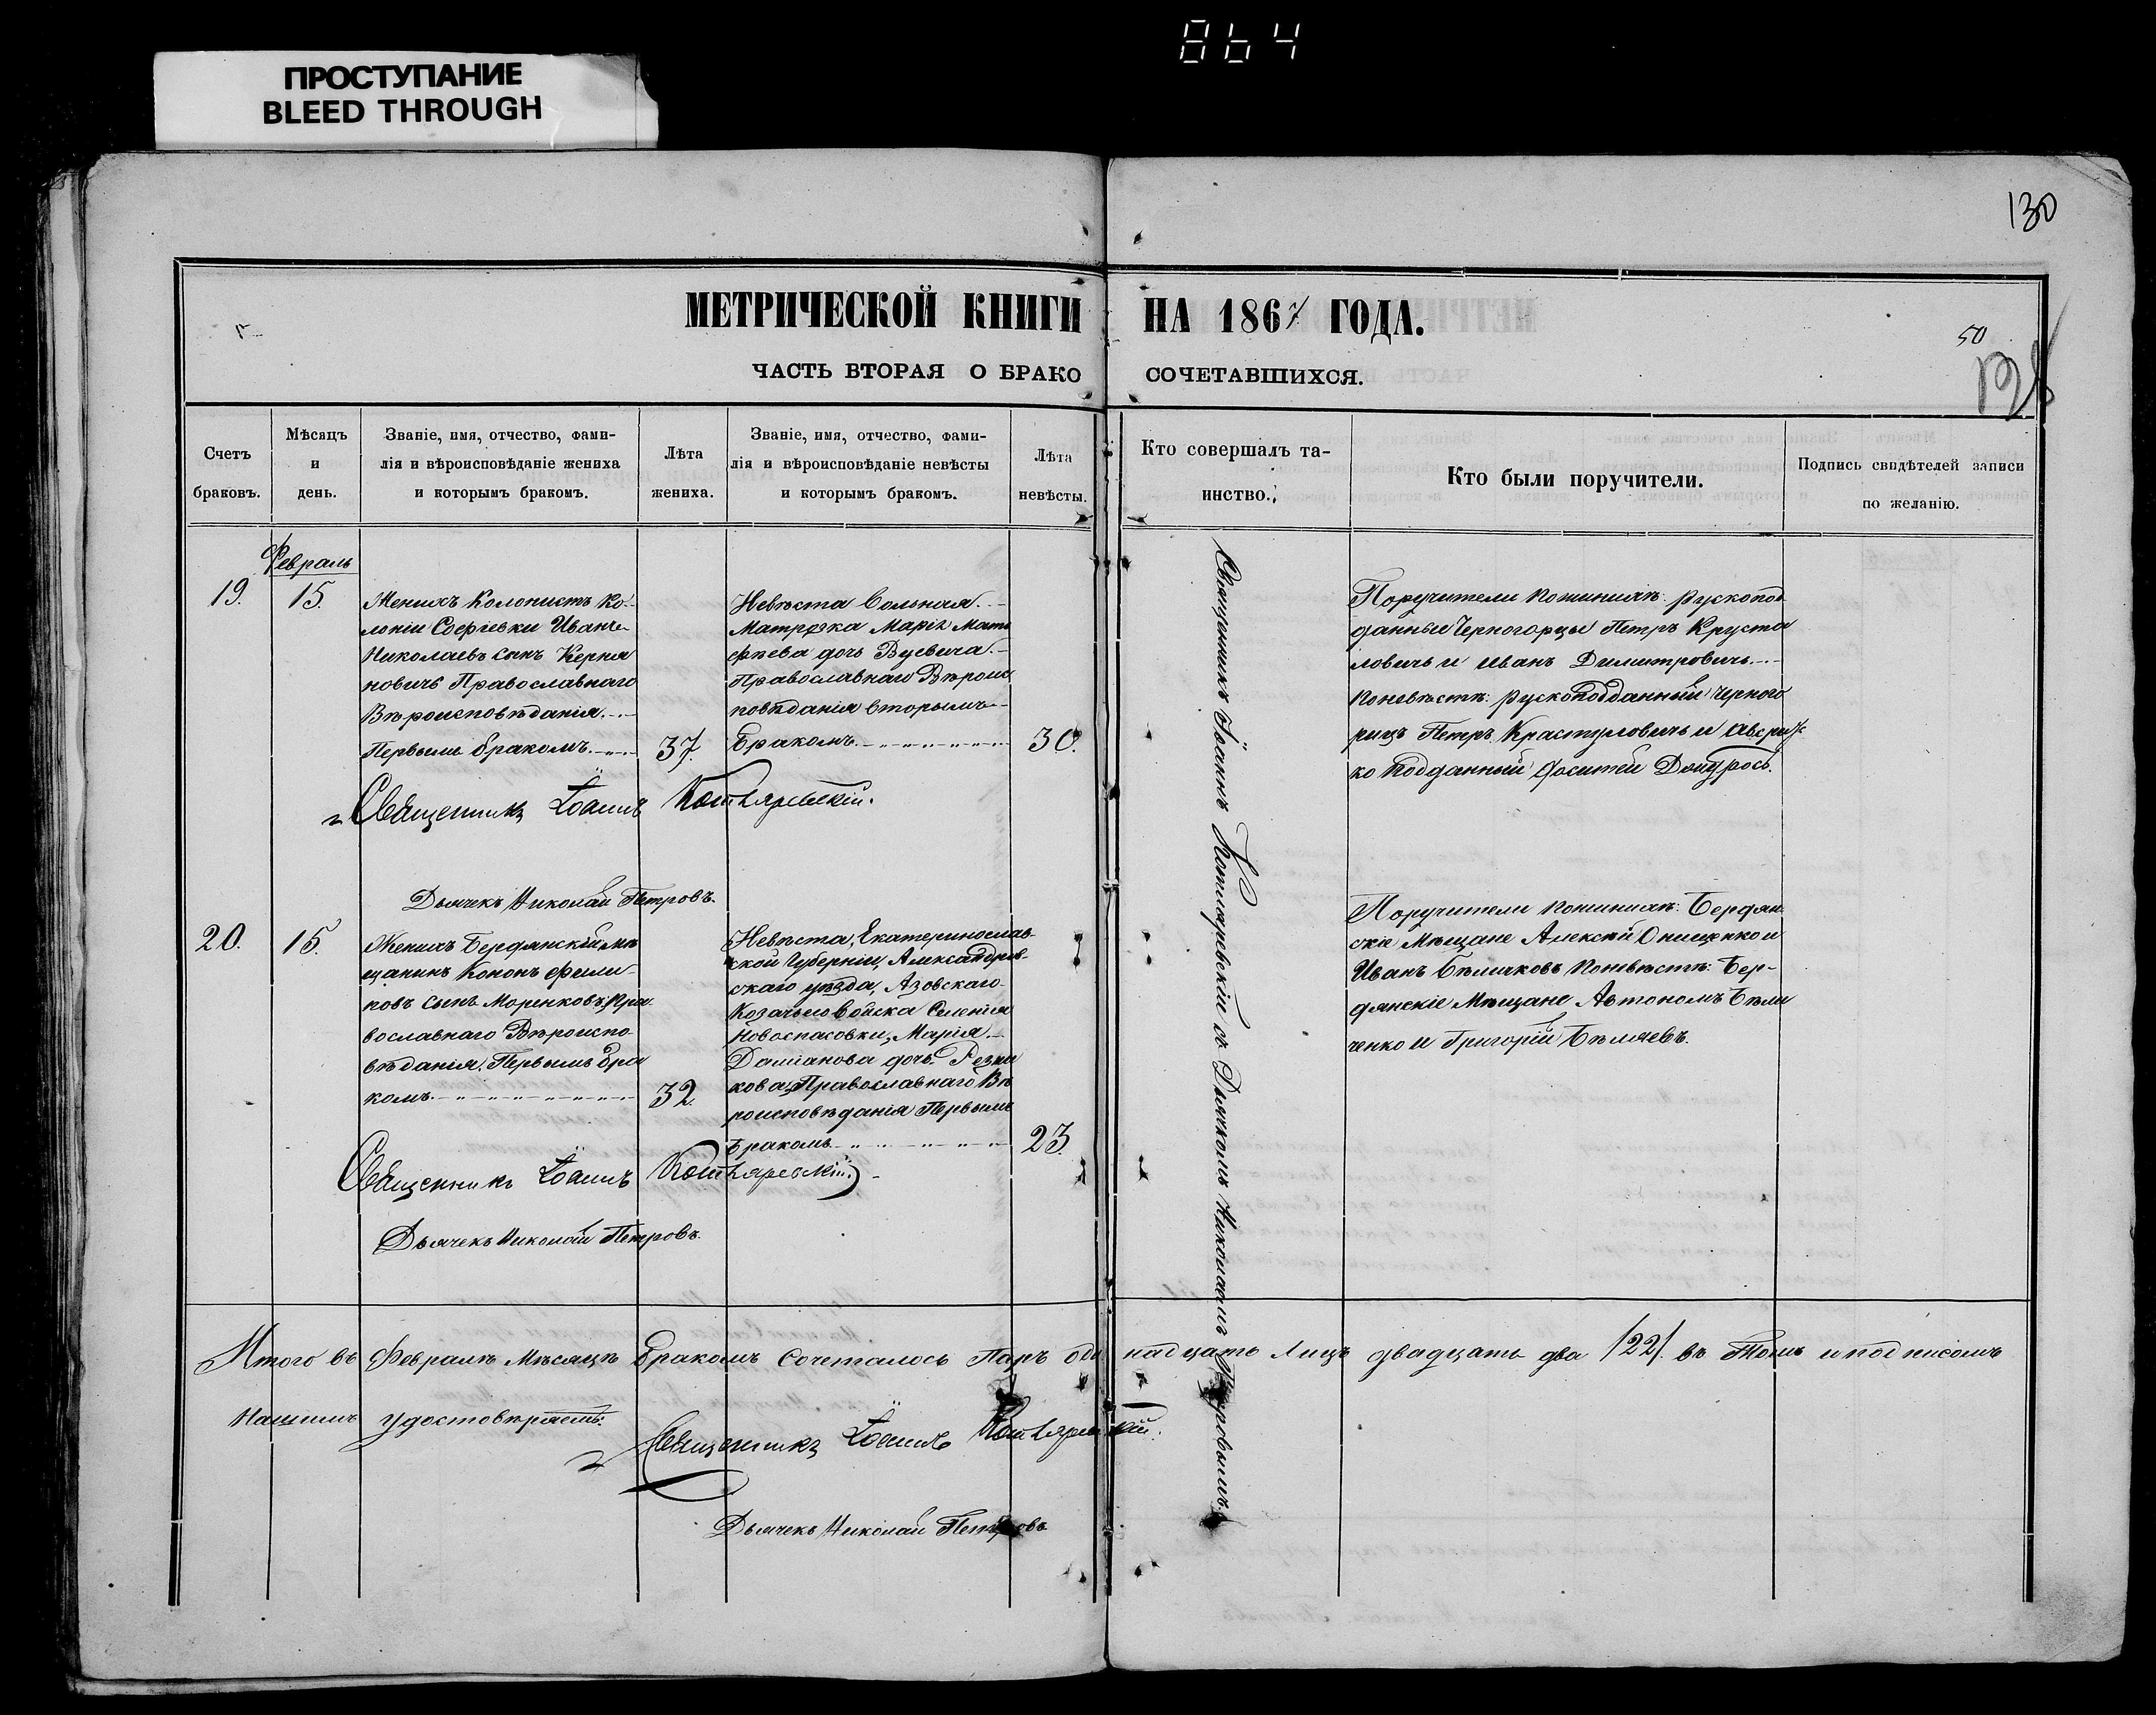 864
ПРОСТУПАНИЕ
BLEED THROUGH
130
МЕТРИЧЕСКОЙ КНИГИ НА 1867 ГОДА.
50
ЧАСТЬ ВТОРАЯ О БРАКОСОЧЕТАВШИХСЯ.
Счетъ
браковъ.
Мѣсяцъ
и
день.
Званіе, имя, отчество, фами-
лія и вѣроисповѣданіе жениха
и которымъ бракомъ.
Лѣта
жениха.
Званіе, имя, отчество, фами-
лія и вѣроисповѣданіе невѣсты
и которымъ бракомъ.
Лѣта
невѣсты.
Кто совершалъ та-
инство.
Кто были поручители.
Подпись свидѣтелей записи
по желанію.
Февраль
19.
15.
Женихъ Колонистъ Ко-
лоніи Софіевки Иванъ
Николаевъ сынъ Керня
новичъ Православнаго
Вѣроисповѣданія.
Первымъ бракомъ.
37.
Невѣста Вольная
Матрозка Марія Мат
фѣева дочь Вуевича.
Православнаго Вѣроис
повѣданія вторымъ
Бракомъ.
30.
Священникъ Іоаннъ Котляревскій.
Дьячекъ Николай Петровъ.
Священникъ Іоаннъ Котляревскій съ Дьячкомъ Николаемъ Петровымъ.
Поручители пожениху: Рускопод
данные Черногорцы Петръ Круста
ловичь и Иванъ Димитровичь.
Поневѣстѣ: Рускоподданный Черного
рецъ Петръ Крастуловичь и Австрійс
ко подданный
20.
15.
Женихъ Бердянскій мѣ
щанинъ Кононъ Фили-
повъ сынъ Моренковъ, Пра
вославнаго Вѣроиспо
вѣданія. Первымъ бра
комъ.
32.
Невѣста, Екатеринослав
ской Губерніи, Александров-
скаго уѣзда, Азовскаго
Козачьяго Войска Селенія
Новоспасовки, Марія
Даміанова дочь Резни
кова, Православнаго Вѣ
роисповѣданія Первымъ
бракомъ
23.
Священникъ Іоаннъ Котляревскій.
Дьячекъ Николай Петровъ.
Поручители пожениху: Бердян
скіе Мѣщане Алексѣй Онищенко и
Иванъ Бѣличковъ Поневѣстѣ: Бер-
дянскіе Мѣщане Автономъ Бѣли
ченко и Григорій Бѣляевъ.
Итого въ Февралѣ Мѣсяцѣ Бракомъ Сочеталось Паръ одинадцать Лицъ двадцать два /22/. въ Томъ и подписомъ
Нашимъ удостовѣряемъ:
Священникъ Іоаннъ Котляревскій.
Дьячекъ Николай Петровъ